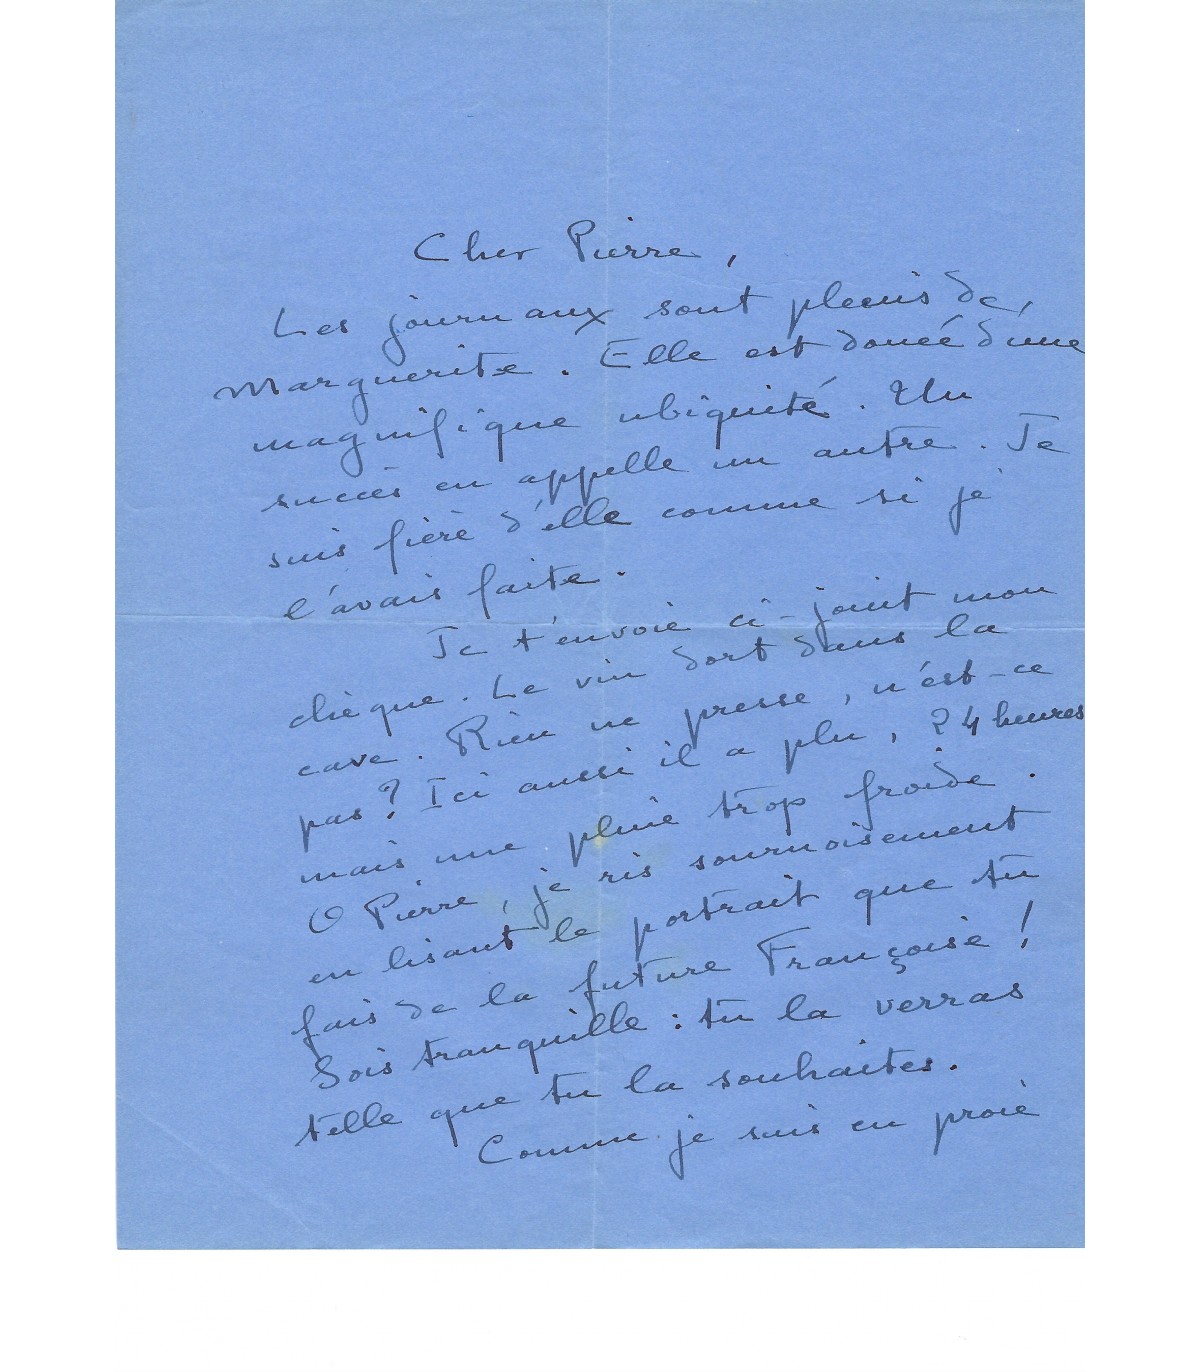 Cher Pierre,
Les journaux sont pleins de
Marguerite. Elle est douée d'une
magnifique ubiquité. Un
succès en appelle un autre. Je
suis fière d'elle comme si je
l'avais faite.
Je t'envoie ci-joint mon
chèque. Le vin dort dans la
cave. Rien ne presse, n'est-ce
pas? Ici aussi il a plu, 24 heures
mais une pluie trop froide.
O Pierre, je ris sournoisement
en lisant le portrait que tu
fais de la future Françoise!
Sois tranquille : tu la verras
telle que tu la souhaites.
Comme je suis en proie